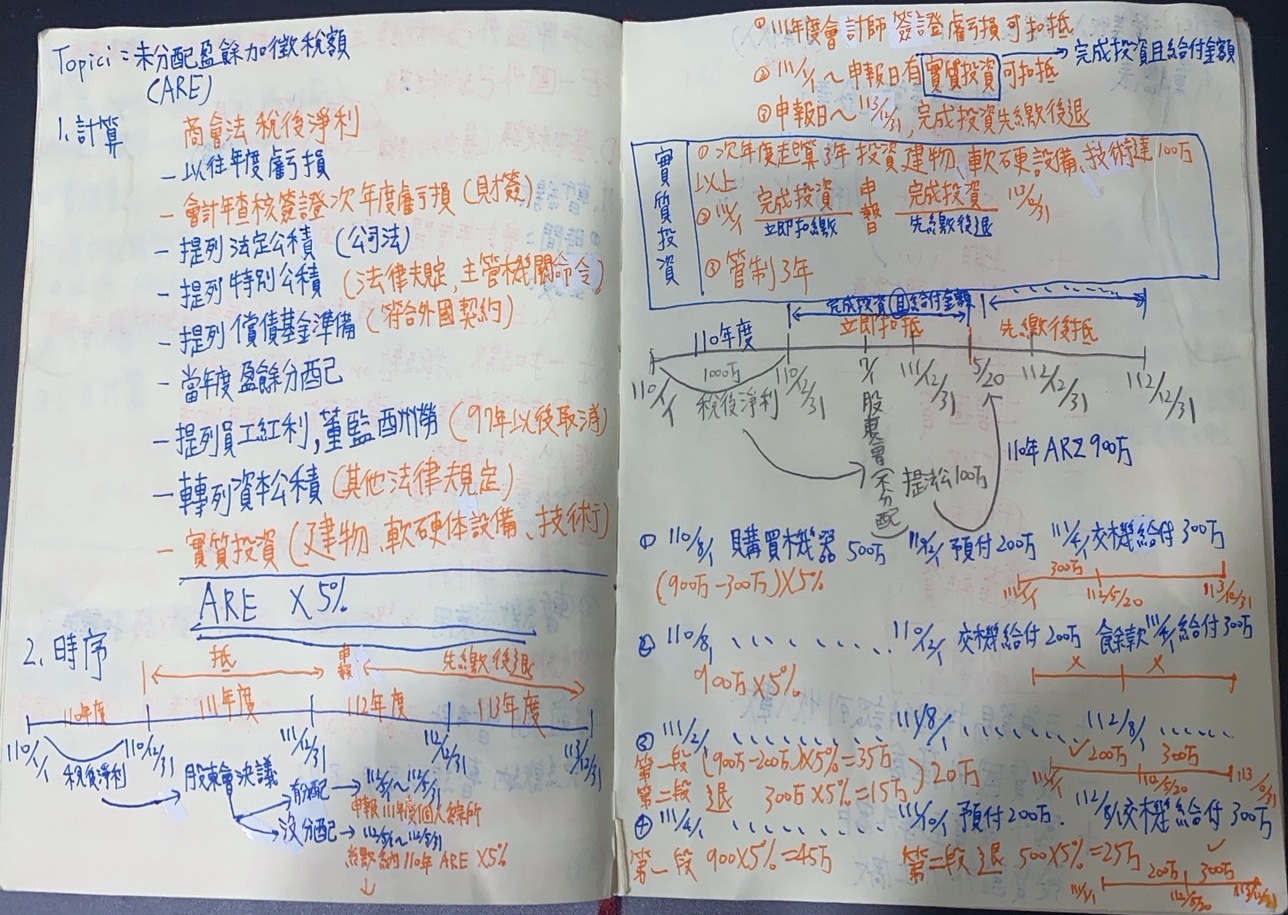 Topic1 = 未分配盈餘加徵稅額
(ARE)
1. 計算
商會法稅後淨利
－以往年度虧損
－會計年查核簽證次年度虧損 (財簽)
－提列法定公積 (公司法)
－提列特別公積 (法律規定, 主管機關命令)
－提列償債基金準備 (符合外國契約)
－當年度盈餘分配
－提列員工紅利, 董監酬勞 (97年以後取消)
－轉列資本公積 (其他法律規定)
－實質投資 (建物、軟硬体設備、技術)
ARE ×5%
2. 時序
抵 申報 先繳後退
110年度 111年度 112年度 113年度
110/1/1 110/12/31 111/12/31 112/12/31 113/12/31
稅後淨利
股東會決議
有分配 → 112/5/1～112/5/31
申報111年度個人綜所
沒分配 → 112/5/1～112/5/31
繳納110年ARE ×5%
① 111年度會計師簽證虧損可扣抵
② 111/1/1～申報日有實質投資可扣抵 → 完成投資且給付金額
③ 申報日～113/12/31, 完成投資先繳後退
實質投資
① 次年度起算3年投資建物、軟硬設備、技術達100万
以上
② 111/1/1 完成投資 立即扣繳 申報日 完成投資 先繳後退 112/12/31
③ 管制3年
完成投資且給付金額
110年度 立即扣抵 先繳後抵
110/1/1 110/12/31 7/1 111/12/31 5/20 112/12/31 112/12/31
1000万
稅後淨利
股東會(不分配)
提法公100万
110年ARE 900万
① 110/8/1 購買機器500万 110/12/1 預付200万 111/4/1交機給付300万
(900万－300万)×5%
300万
111/1/1 112/5/20 113/12/31
② 110/8/1 、、、、、、、 110/12/1 交機給付200万 餘款111/4/1給付300万
900万×5%
× ×
③ 111/2/1 、、、、、、、 111/8/1 、、、、、、 112/8/1 、、、、、
第一段 (900万－200万)×5%＝35万
第二段 退 300万×5%＝15万
20万
200万 300万
④ 111/4/1 、、、、、、、 111/10/1 預付200万. 112/8/1交機給付300万
第一段 900×5%＝45万 第二段 退 500×5%＝25万
200万 300万
111/1/1 112/5/20 113/12/31